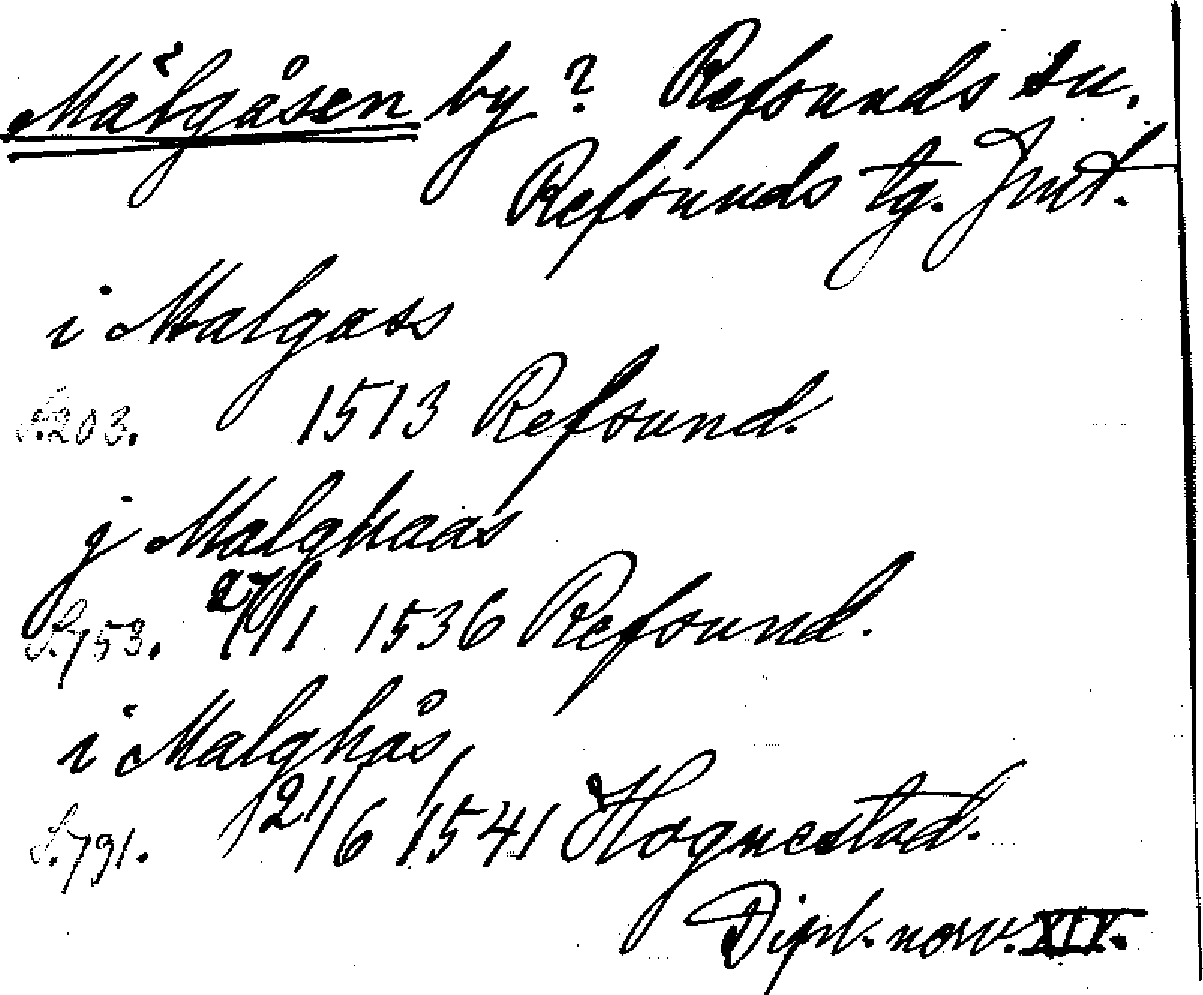 Mälgåsen by? Refsunds sn.
Refsunds tg. Jmt.
i Malgass
S.203. 1513 Refsund.
j Malghaas
S.753. 27/1 1536 Refsund.
i Malghås,
S.791. 21/6 1541 Hognestad.
Dipl. norv. XIV.